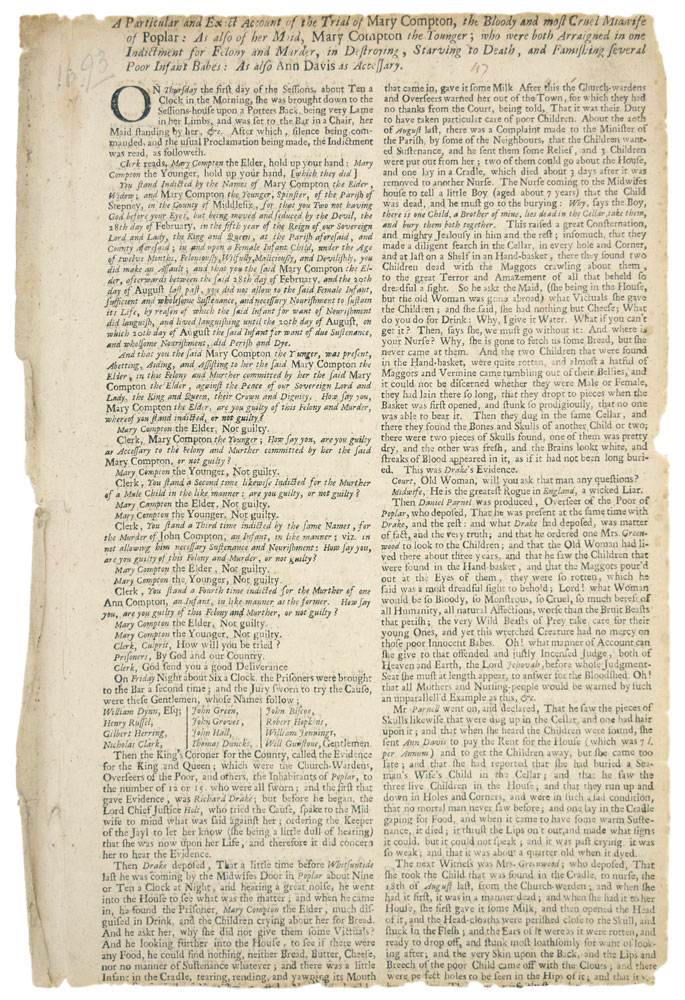 A Particular and Exact Account of the Trial of Mary Compton, the Bloody and most Cruel Midwife
of Poplar: As also of her Maid, Mary Compton the Younger; who were both Arraigned in one
Indictment for Felony and Murder, in Destroying, Starving to Death, and Famishing several
Poor Infant Babes: As also Ann Davis as Accessary.
1693
47
ON Thursday the first day of the Sessions, about Ten a
Clock in the Morning, she was brought down to the
Sessions-house upon a Porters Back, being very Lame
in her Limbs, and was set to the Bar in a Chair, her
Maid standing by her, &c. After which, silence being com-
manded, and the usual Proclamation being made, the Indictment
was read, as followeth.
Clerk reads, Mary Compton the Elder, hold up your hand: Mary
Compton the Younger, hold up your hand, [which they did]
You stand Indicted by the Names of Mary Compton the Elder,
Widow; and Mary Compton the Younger, Spinster, of the Parish of
Stepney, in the County of Middlesex, for that you Two not having
God before your Eyes, but being moved and seduced by the Devil, the
28th day of February, in the fifth year of the Reign of our Sovereign
Lord and Lady, the King and Queen, at the Parish aforesaid, and
County aforesaid; in and upon a Female Infant Child, under the Age
of twelve Months, Feloniously, Wilfully, Maliciously, and Devilishly, you
did make an Assault; and that you the said Mary Compton the El-
der, afterwards between the said 28th day of February, and the 20th
day of August last past, you did not allow to the said Female Infant,
sufficient and wholesome Sustenance, and necessary Nourishment to sustain
its Life, by reason of which the said Infant for want of Nourishment
did languish, and lived languishing until the 20th day of August, on
which 20th day of August the said Infant for want of due Sustenance,
and wholsome Nourishment, did Perish and Dye.
And that you the said Mary Compton the Younger, was present,
Abetting, Aiding, and Assisting to her the said Mary Compton the
Elder, in this Felony and Murther committed by her the said Mary
Compton the Elder, against the Peace of our Sovereign Lord and
Lady, the King and Queen, their Crown and Dignity. How say you,
Mary Compton the Elder, are you guilty of this Felony and Murder,
whereof you stand indicted, or not guilty?
Mary Compton the Elder, Not guilty.
Clerk, Mary Compton the Younger; How say you, are you guilty
as Accessary to the Felony and Murther committed by her the said
Mary Compton, or not guilty?
Mary Compton the Younger, Not guilty.
Clerk, You stand a Second time likewise Indicted for the Murther
of a Male Child in the like manner: are you guilty, or not guilty?
Mary Compton the Elder, Not guilty.
Mary Compton the Younger, Not guilty.
Clerk, You stand a Third time indicted by the same Names, for
the Murder of John Compton, an Infant, in like manner; viz. in
not allowing him necessary Sustenance and Nourishment: How say you,
are you guilty of this Felony and Murder, or not guilty?
Mary Compton the Elder, Not guilty.
Mary Compton the Younger, Not guilty.
Clerk, You stand a Fourth time indicted for the Murther of one
Ann Compton, an Infant, in like manner as the former. How say
you, are you guilty of this Felony and Murther, or not guilty?
Mary Compton the Elder, Not guilty.
Mary Compton the Younger, Not guilty.
Clerk, Culprit, How will you be tried?
Prisoners, By God and our Country.
Clerk, God send you a good Deliverance
On Friday Night about Six a Clock, the Prisoners were brought
to the Bar a second time; and the Jury sworn to try the Cause,
were these Gentlemen, whose Names follow;
William Dynn, Esq; John Green, John Biscoe,
Henry Russel, John Groves, Robert Hopkins,
Gilbert Herring, John Hall, William Jennings,
Nicholas Clark, Thomas Duncks, Will Gunstone, Gentlemen.
Then the King's Coroner for the County, called the Evidence
for the King and Queen; which were the Church-Wardens,
Overseers of the Poor, and others, the Inhabitants of Poplar, to
the number of 12 or 15. who were all sworn; and the first that
gave Evidence, was Richard Drake; but before he began, the
Lord Chief Justice Holt, who tried the Cause, spake to the Mid-
wife to mind what was said against her; ordering the Keeper
of the Jayl to let her know (she being a little dull of hearing)
that she was now upon her Life, and therefore it did concern
her to hear the Evidence.
Then Drake deposed, That a little time before Whitsuntide
last he was coming by the Midwifes Door in Poplar about Nine
or Ten a Clock at Night, and hearing a great noise, he went
into the House to see what was the matter; and when he came
in, he found the Prisoner, Mary Compton the Elder, much dis-
guised in Drink, and the Children crying about her for Bread.
And he askt her, why she did not give them some Victuals?
And he looking further into the House, to see if there were
any Food, he could find nothing, neither Bread, Butter, Cheese,
nor no manner of Sustenance whatever; and there was a little
Infant in the Cradle, tearing, rending, and yawning its Mouth
that came in, gave it some Milk After this the Church-wardens
and Overseers warned her out of the Town, for which they had
no thanks from the Court, being told, That it was their Duty
to have taken particular care of poor Children. About the 20th
of August last, there was a Complaint made to the Minister of
the Parish, by some of the Neighbours, that the Children want-
ed Sustenance, and he sent them some Relief, and 3 Children
were put out from her; two of them could go about the House,
and one lay in a Cradle, which died about 3 days after it was
removed to another Nurse. The Nurse coming to the Midwifes
house to tell a little Boy (aged about 7 years) that the Child
was dead, and he must go to the burying: Why, says the Boy,
there is one Child, a Brother of mine, lies dead in the Cellar, take them,
and bury them both together. This raised a great Consternation,
and mighty Jealousy in him and the rest; insomuch, that they
made a diligent search in the Cellar, in every hole and Corner,
and at last on a Shelf in an Hand-basket, there they found two
Children dead with the Maggots crawling about them,
to the great Terror and Amazement of all that beheld so
dreadful a sight. So he askt the Maid, (she being in the House,
but the old Woman was gone abroad) what Victuals she gave
the Children; and she said, she had nothing but Cheese; What
do you do for Drink: Why, I give it Water. What if you can't
get it? Then, says she, we must go without it: And where is
your Nurse? Why, she is gone to fetch us some Bread, but she
never came at them. And the two Children that were found
in the Hand-basket, were quite rotten, and almost a hatful of
Maggots and Vermine came tumbling out of their Bellies, and
it could not be discerned whether they were Male or Female,
they had lain there so long, that they dropt to pieces when the
Basket was first opened, and stunk so prodigiously, that no one
was able to bear it. Then they dug in the same Cellar, and
there they found the Bones and Skulls of another Child or two;
there were two pieces of Skulls found, one of them was pretty
dry, and the other was fresh, and the Brains lookt white, and
streaks of Blood appeared in it, as if it had not been long buri-
ed. This was Drake's Evidence.
Court, Old Woman, will you ask that man any questions?
Midwife, He is the greatest Rogue in England, a wicked Liar.
Then Daniel Parnel was produced, Overseer of the Poor of
Poplar, who deposed, That he was present at the same time with
Drake, and the rest: and what Drake had deposed, was matter
of fact, and the very truth; and that he ordered one Mrs. Green-
wood to look to the Children; and that the Old Woman had li-
ved there about three years, and that he saw the Children that
were found in the Hand-basket, and that the Maggots pour'd
out at the Eyes of them, they were so rotten, which he
said was a most dreadful sight to behold; Lord! what Woman
would be so Bloody, so Monstrous, so Cruel, so much bereft of
all Humanity, all natural Affections, worse than the Bruit Beasts
that perish; the very Wild Beasts of Prey take care for their
young Ones, and yet this wretched Creature had no mercy on
those poor Innocent Babes. Oh! what manner of Account can
she give to that offended and justly Incensed Judge, both of
Heaven and Earth, the Lord Jehovah, before whose Judgment-
Seat she must at length appear, to answer for the Bloodshed. Oh!
that all Mothers and Nursing-people would be warned by such
an unparallell'd Example as this, &c.
Mr Parnell went on, and declared, That he saw the pieces of
Skulls likewise that were dug up in the Cellar, and one had hair
upon it; and that when she heard the Children were found, she
sent Ann Davis to pay the Rent for the House (which was 7 l.
per Annum) and to get the Children away, but she came too
late; and that she had reported that she had buried a Sea-
man's Wife's Child in the Cellar; and that he saw the
three live Children in the House; and that they run up and
down in Holes and Corners, and were in such a sad condition,
that no mortal man never saw before; and one lay in the Cradle
gaping for Food, and when it came to have some warm Suste-
nance, it died; it thrust the Lips on't out, and made what signs
it could, but it could not speak; and it was past crying, it was
so weak; and that it was about a quarter old when it dyed.
The next Witness was Mrs. Greenwood; who deposed, That
she took the Child that was found in the Cradle, to nurse, the
18th of August last, from the Church-warden; and when she
had it first, it was in a manner dead; and when she had it to her
House, she first gave it some Milk, and then opened the Head
of it, and the Head-cloaths were perished close to the Skull, and
stuck in the Flesh; and the Ears of it were as it were rotten, and
ready to drop off, and stunk most loathsomly for want of look-
ing after; and the very Skin upon the Back, and the Lips and
Breech of the poor Child came off with the Clouts; and there
were perfect holes to be seen in the Hips of it; and that it